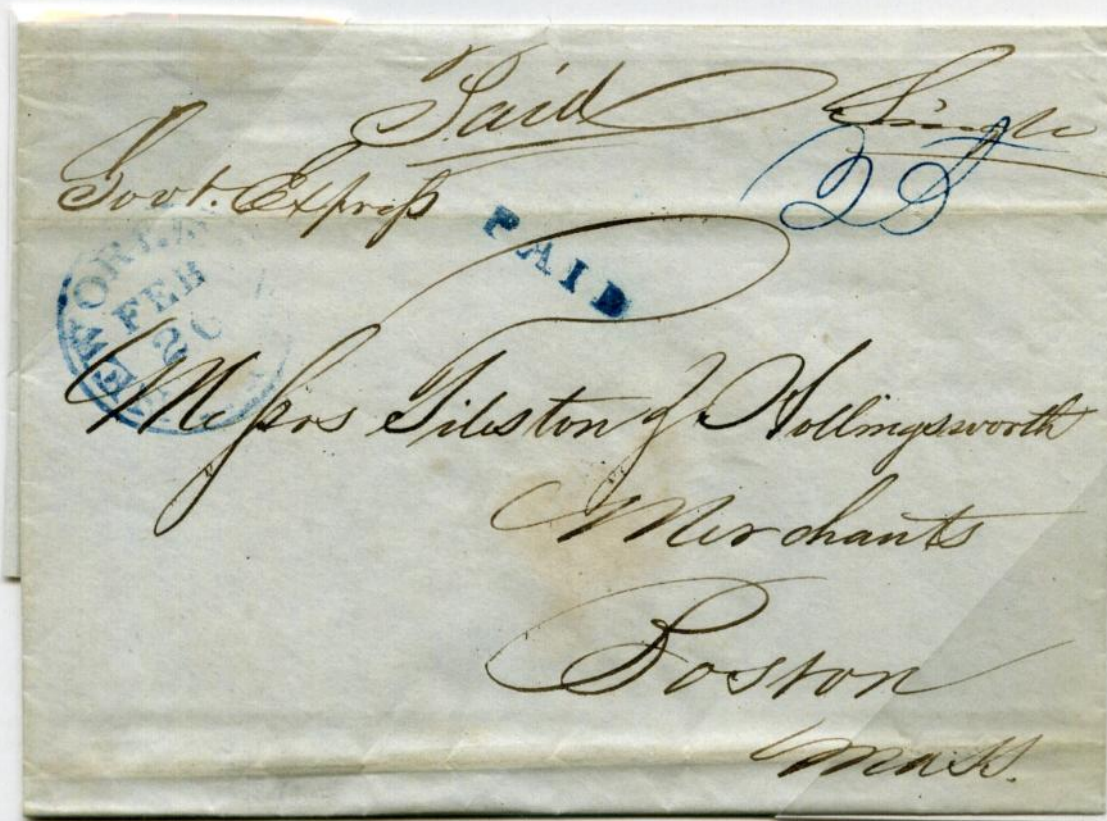 Paid Single
Govt. Express
25
PAID
NEW ORLEA
FEB
20
Messrs Tileston & Hollingsworth
Merchants
Boston
Mass.